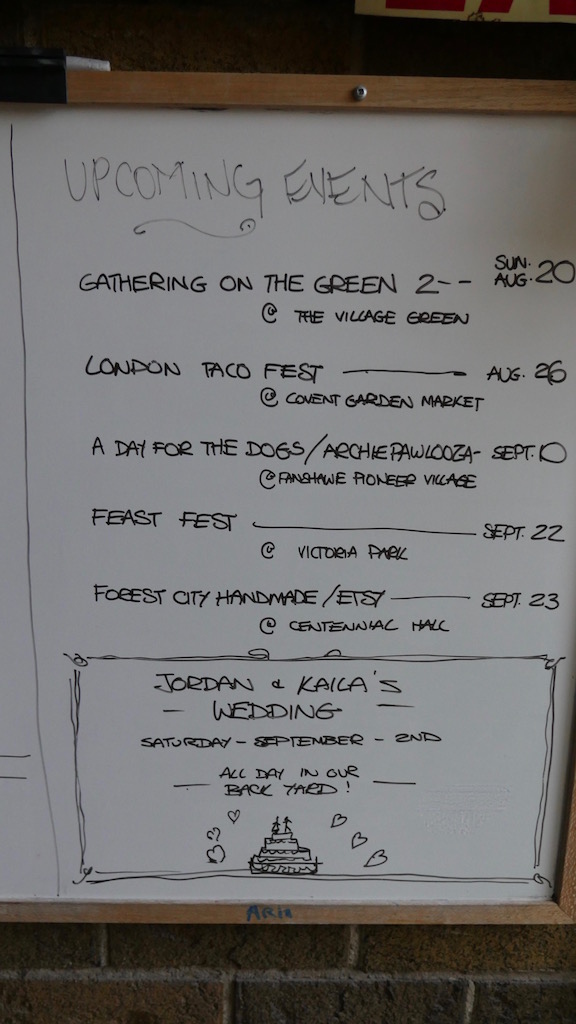 UPCOMING EVENTS
SUN.
GATHERING ON THE GREEN 2-- AUG. 20
@ THE VILLAGE GREEN
LONDON TACO FEST — AUG. 26
@ COVENT GARDEN MARKET
A DAY FOR THE DOGS/ARCHIEPAWLOOZA- SEPT. 10
@ FANSHAWE PIONEER VILLAGE
FEAST FEST — SEPT. 22
@ VICTORIA PARK
FOREST CITY HANDMADE/ETSY — SEPT. 23
@ CENTENNIAL HALL
JORDAN & KAILA'S
— WEDDING —
SATURDAY - SEPTEMBER - 2ND
ALL DAY IN OUR
— BACK YARD! —